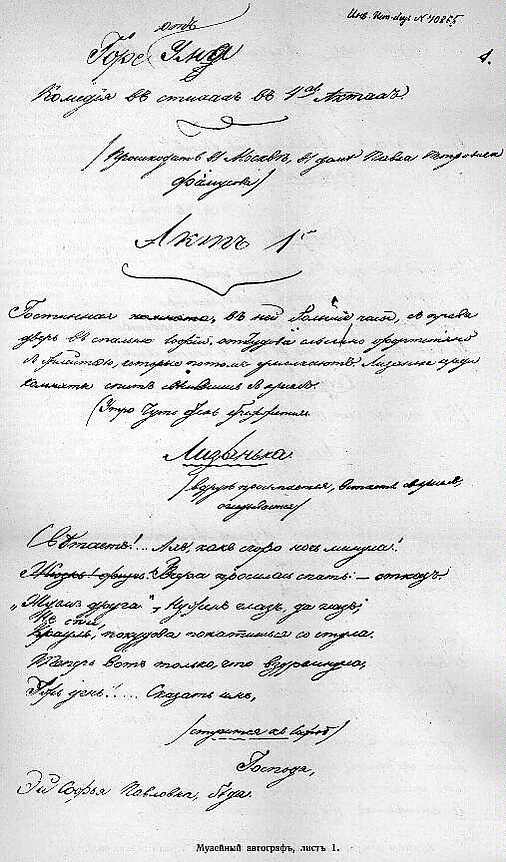 Инв. Ист-быт № 40855
1.
отъ
Горе Ума
Комедія въ стихахъ въ 4хъ Актахъ.
(Происходитъ въ Москвѣ, въ домѣ Павла Петровича
Фамусова)
Актъ 1й
Гостинная комната, въ ней большіе часы, съ права
дверь въ спальню Софіи, оттудова слышно фортепіано
съ флейтою, которые потомъ умолкаютъ. Лизанька среди
комнаты спитъ свѣсившись съ креселъ.
(Утро чуть день брежжется
Лизанька
(вдругъ просыпается, встаетъ съ креселъ,
оглядывается)
Свѣтаетъ!... Ахъ, какъ скоро ночь минула!
Вчера просилась спать: – отказъ.
„Ждемъ друга", – Нуженъ глазъ, да глазъ;
Не спи
покудова не скатишься со стула.
Теперь вотъ только, что вздремнула,
Ужъ день!.... Сказать имъ,
(стучится къ Софіи)
Господа,
Эй Софья Павловна, бѣда.
Музейный автографъ, листъ 1.